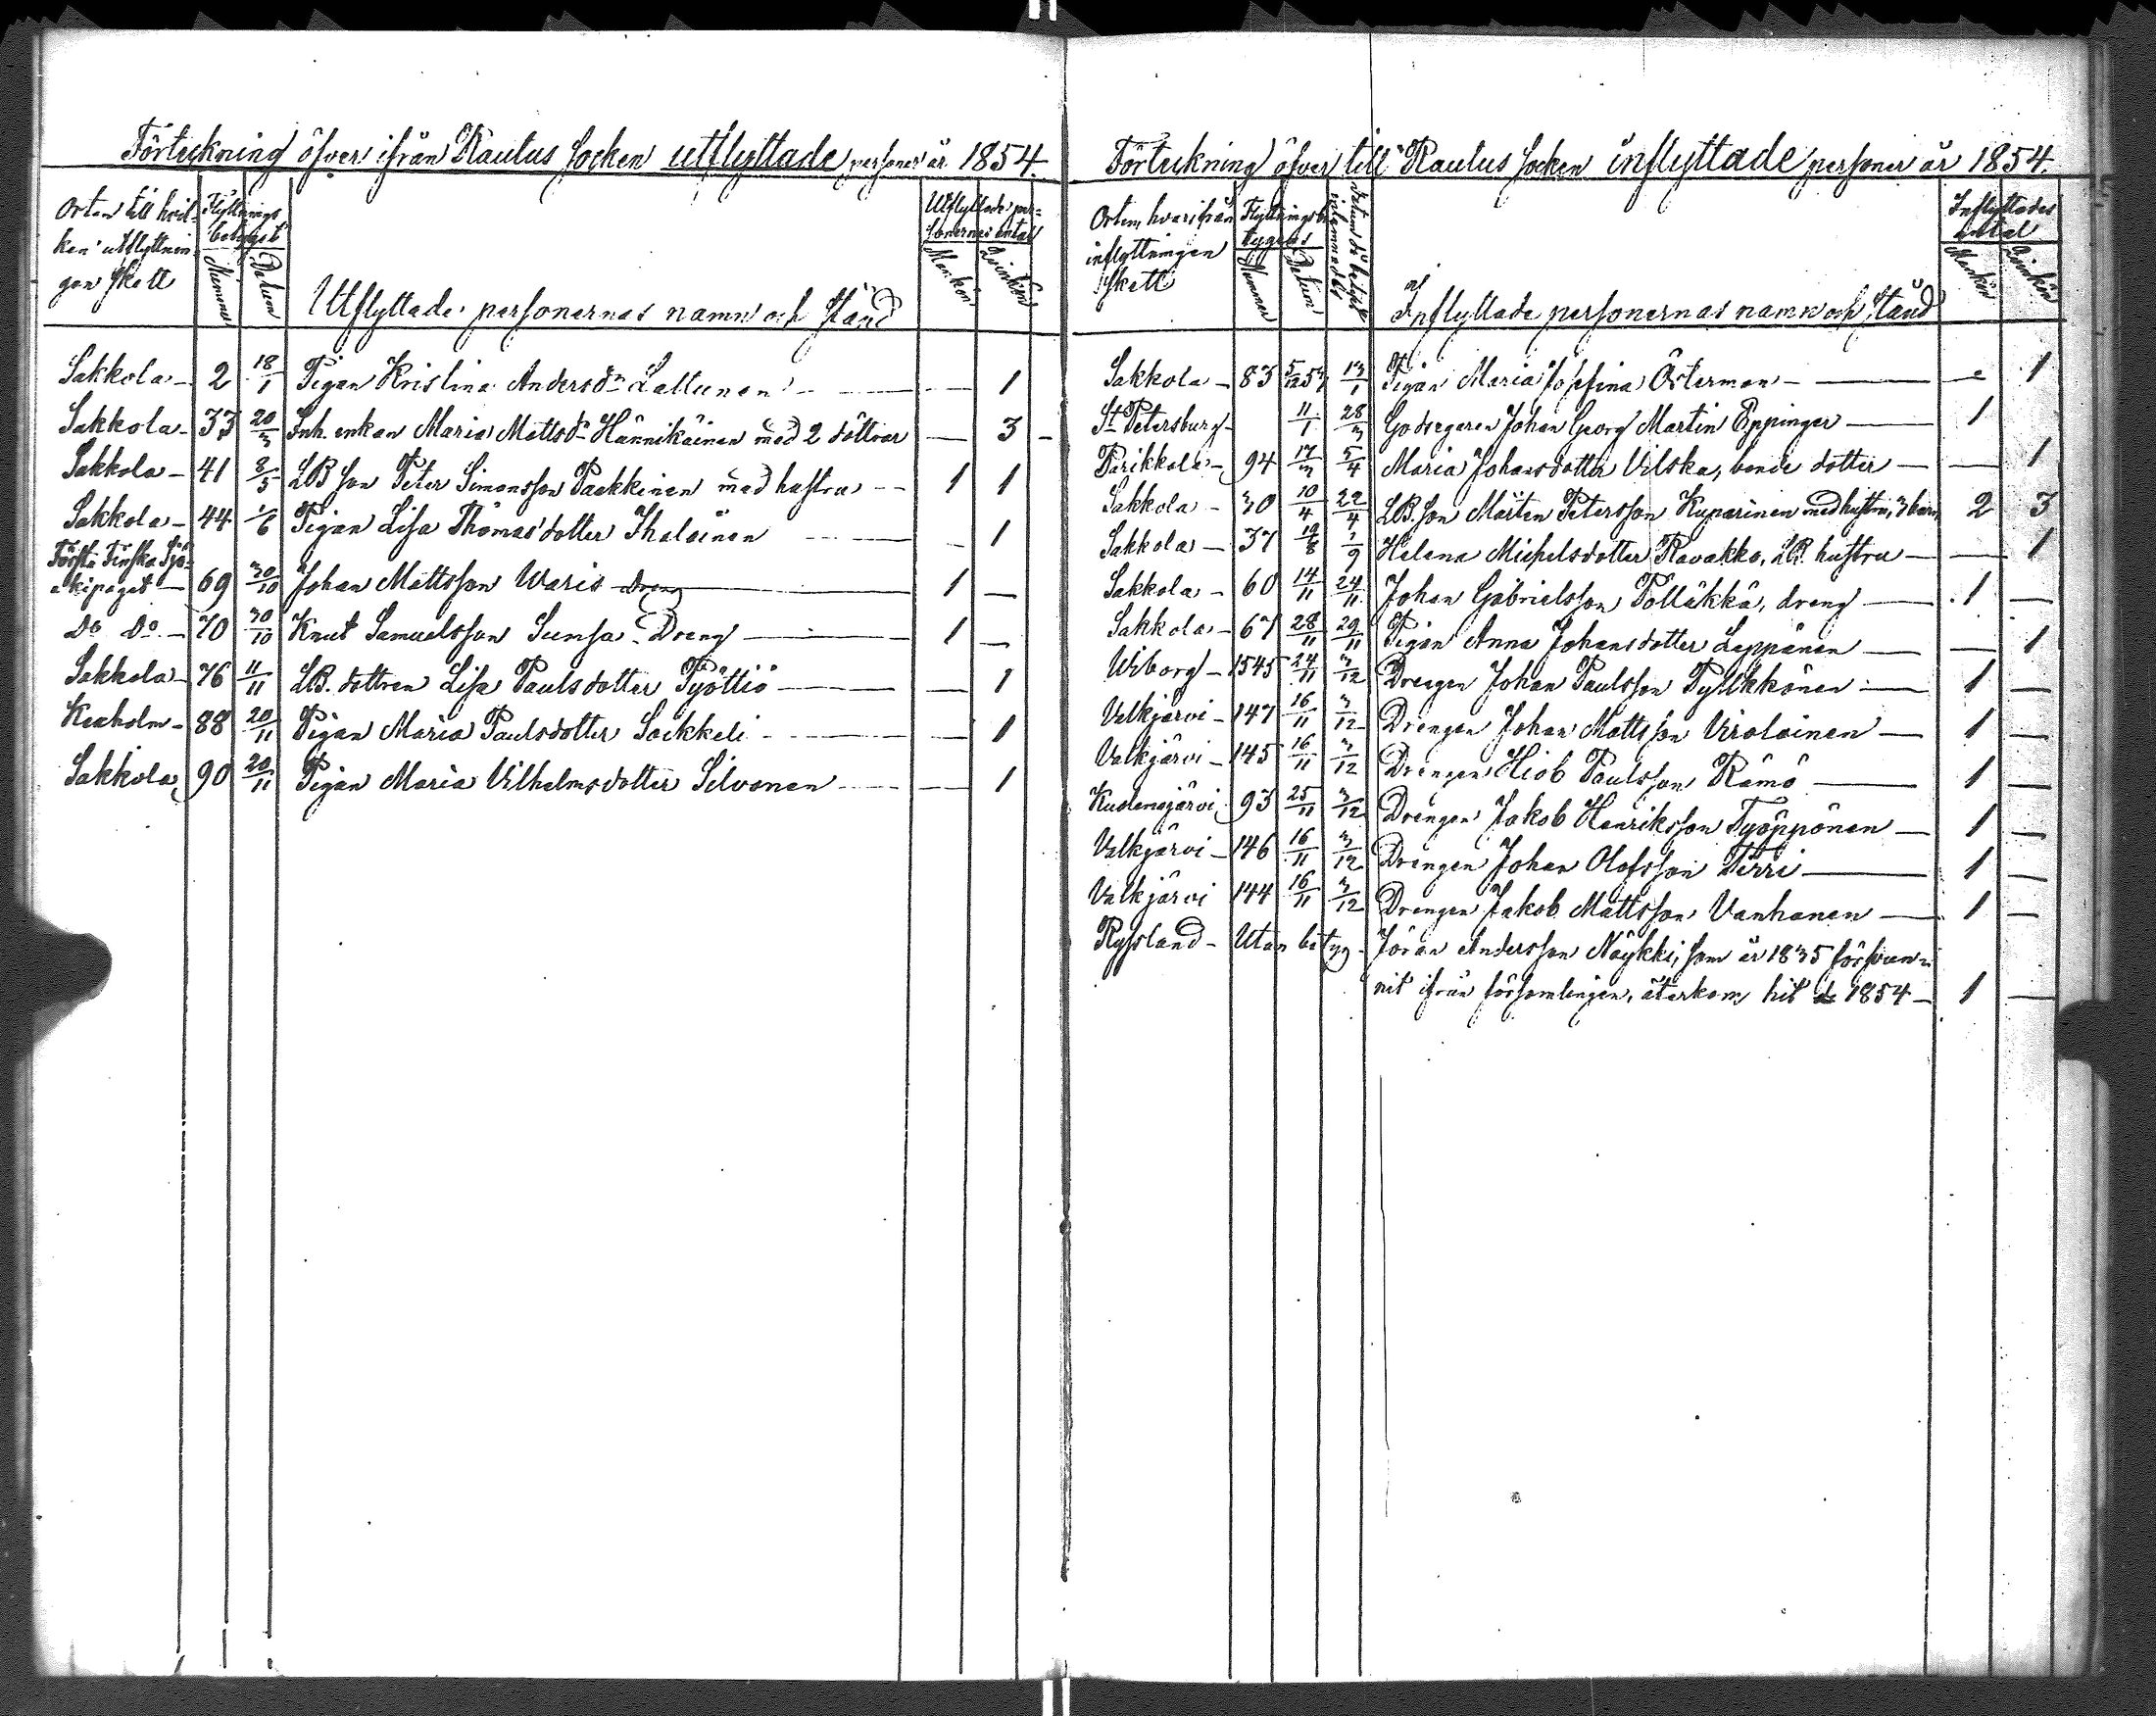 Förteckning öfver ifrån Rautus socken utflyttade personer år 1854.
Orten till hvil-
ken utflyttnin-
gen skett
Flyttnings
betyget
Nummer
Datum
Utflyttade personernas namn och stånd
Utflyttade per-
sonernas antal
Mankön
Qvinkön
Sakkola - 2 18/1 Pigan Kristina Andersdr Lattunen - 1
Sakkola - 33 20/3 Inh. enkan Maria Mattsdr Hännikäinen med 2 döttrar - 3 -
Sakkola - 41 8/5 LB son Peter Simonsson Paakkinen med hustru - 1 1
Sakkola - 44 1/6 Pigan Lisa Thomasdotter Ihalainen - 1
Första Finska Sjö-
ekipaget - 69 30/10 Johan Mattsson Waris dreng 1 -
Do Do - 70 30/10 Knut Samuelsson Sumsa Dreng - 1 -
Sakkola - 76 11/11 LB. dottren Lisa Paulsdotter Pyöttiö - 1
Kexholm - 88 20/11 Pigan Maria Paulsdotter Saikkeli - 1
Sakkola 90 20/11 Pigan Maria Vilhelmsdotter Silvonen - 1
Förteckning öfver till Rautus socken inflyttade personer år 1854.
Orten, hvarifrån
inflyttningen
skett
Flyttningsbe-
tygets
Nummer
Datum
Datum då betyget
inlemnades
Inflyttade personernas namn och stånd
Inflyttades
antal
Mankön
Qvinkön
Sakkola - 83 5/12 53 13/1 Pigan Maria Josefina Österman - 1
St Petersburg - 11/1 28/3 Godsegaren Johan Georg Martin Eppinger - 1
Parikkala - 94 17/3 5/4 Maria Johansdotter Vilska, bonde dotter - 1
Sakkola - 30 10/4 22/4 LB. son Mårten Petersson Kuparinen med hustru, 3 barn 2 3
Sakkola - 37 19/8 3/9 Helena Michelsdotter Ravakko, LB. hustru - 1
Sakkola - 60 14/11 24/11 Johan Gabrielsson Pölläkkä, dreng - 1 -
Sakkola - 67 28/11 29/11 Pigan Anna Johansdotter Leppänen - 1
Wiborg - 1545 24/11 3/12 Drengen Johan Paulsson Pylkkönen - 1 -
Valkjärvi - 147 16/11 3/12 Drengen Johan Mattsson Virolainen - 1 -
Valkjärvi - 145 16/11 3/12 Drengen Hiob Paulsson Rämö - 1 -
Kuolemajärvi 93 25/11 3/12 Drengen Jakob Henriksson Työppönen - 1 -
Valkjärvi - 146 16/11 3/12 Drengen Johan Olofsson Terri - 1 -
Valkjärvi 144 16/11 3/12 Drengen Jakob Mattsson Vanhanen - 1 -
Ryssland - Utan betyg - Jöran Andersson Näykki, som år 1835 försvun-
nit ifrån församlingen, återkom hit 1854 - 1 -